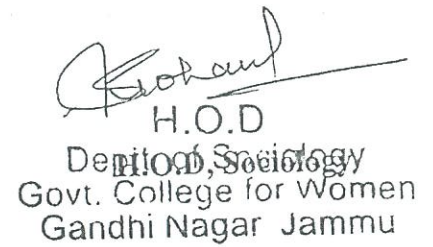 H.O.D
Deptt. of Sociology
H.O.D, Sociology
Govt. College for Women
Gandhi Nagar Jammu